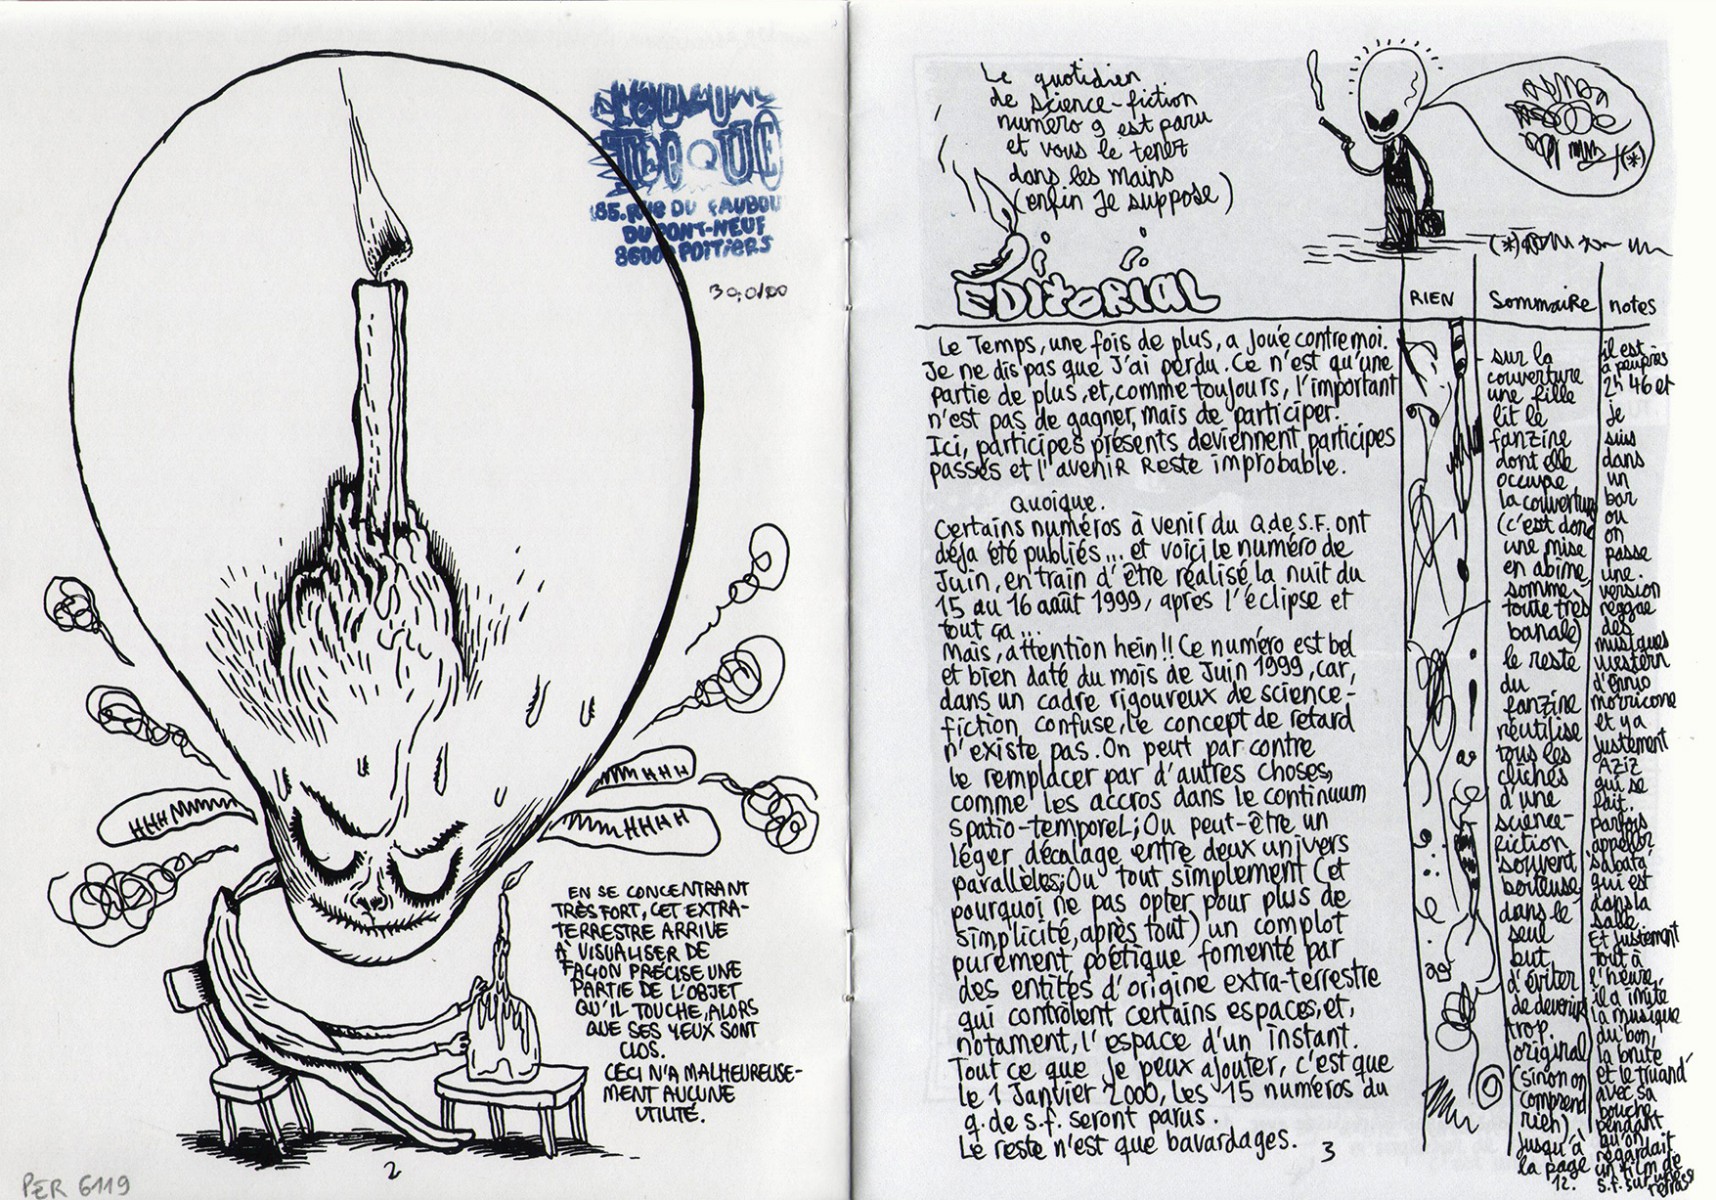 TOQUE
85. RUE DU FAUBOU
DU PONT-NEUF
86000 POITIERS
EN SE CONCENTRANT
TRÈS FORT, CET EXTRA-
TERRESTRE ARRIVE
À VISUALISER DE
FAÇON PRÉCISE UNE
PARTIE DE L'OBJET
QU'IL TOUCHE, ALORS
QUE SES YEUX SONT
CLOS.
CECI N'A MALHEUREUSE-
MENT AUCUNE
UTILITÉ.
2
PER 6119
Le quotidien
de science-fiction
numéro 9 est paru
et vous le tenez
dans les mains
(enfin je suppose)
EDITORIAL
Le Temps, une fois de plus, a joué contre moi.
Je ne dis pas que j'ai perdu. Ce n'est qu'une
partie de plus, et, comme toujours, l'important
n'est pas de gagner, mais de participer.
Ici, participes présents deviennent participes
passés et l'avenir reste improbable.
Quoique.
Certains numéros à venir du Q.de S.F. ont
déja été publiés... et voici le numéro de
Juin, en train d'être réalisé la nuit du
15 au 16 août 1999, après l'éclipse et
tout ça...
Mais, attention hein!! Ce numéro est bel
et bien daté du mois de Juin 1999, car,
dans un cadre rigoureux de science-
fiction confuse, le concept de retard
n'existe pas. On peut par contre
le remplacer par d'autres choses,
comme les accros dans le continuum
spatio-temporel; Ou peut-être un
léger décalage entre deux univers
parallèles; Ou tout simplement (et
pourquoi ne pas opter pour plus de
simplicité, après tout) un complot
purement poétique fomenté par
des entités d'origine extra-terrestre
qui contrôlent certains espaces, et,
notamment, l'espace d'un instant.
Tout ce que je peux ajouter, c'est que
le 1 Janvier 2000, les 15 numéros du
q. de s.f. seront parus.
Le reste n'est que bavardages.
3
RIEN
Sommaire
sur la
couverture
une fille
lit le
fanzine
dont elle
occupe
la couverture
(c'est donc
une mise
en abime,
somme
toute très
banale)
le reste
du
fanzine
réutilise
tous les
clichés
d'une
science-
fiction
souvent
boiteuse
dans le
seul
but
d'éviter
de devenir
trop
original
(sinon on
comprend
rien).
Jusqu'à
la page
12.
notes
il est
à peu près
2h 46 et
je
suis
dans
un
bar
ou
on
passe
une
version
reggae
des
musiques
western
d'ennio
morricone
et y a
justement
AZIZ
qui se
fait
parfois
appeller
sabata
qui est
dans la
salle
Et justement
tout à
l'heure,
il a imité
la musique
du bon,
la brute
et le truand
avec sa
bouche
pendant
qu'on
regardait
un film de
s.f. sur